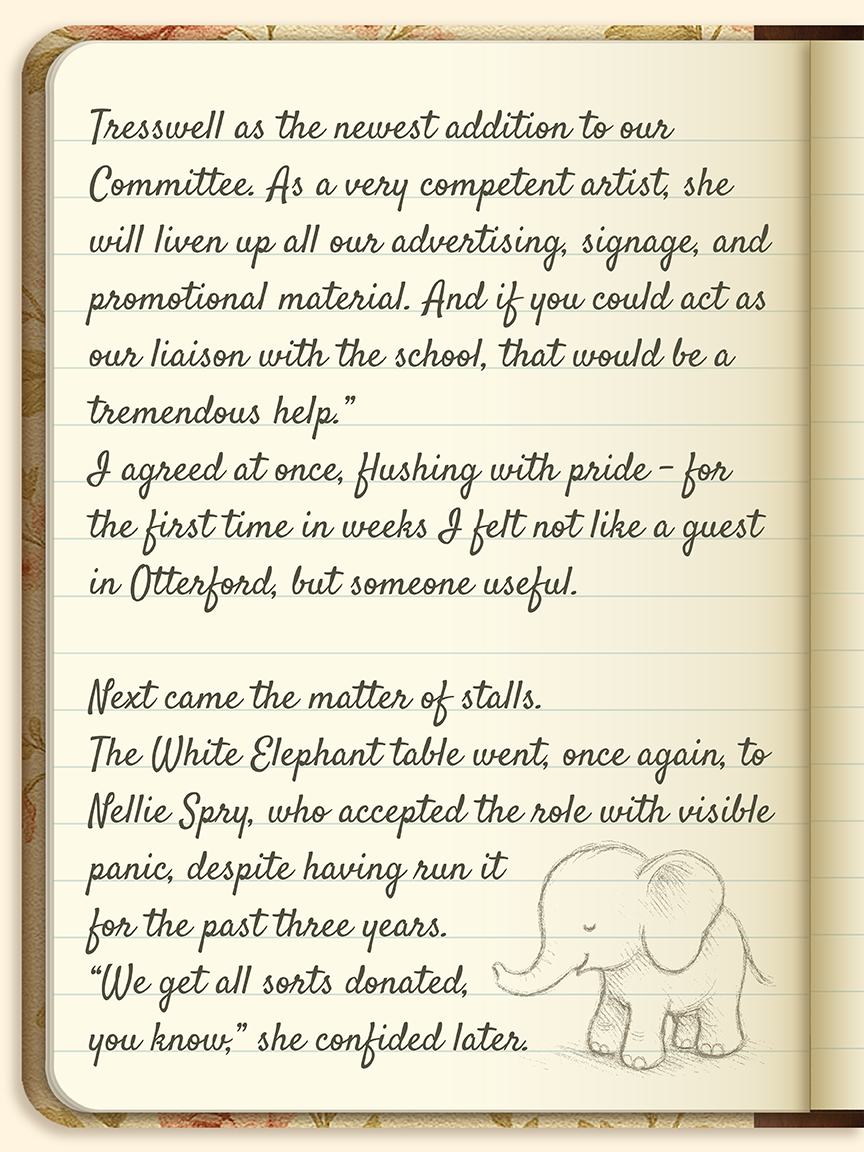 Tresswell as the newest addition to our
Committee. As a very competent artist, she
will liven up all our advertising, signage, and
promotional material. And if you could act as
our liaison with the school, that would be a
tremendous help.”
I agreed at once, flushing with pride – for
the first time in weeks I felt not like a guest
in Otterford, but someone useful.

Next came the matter of stalls.
The White Elephant table went, once again, to
Nellie Spry, who accepted the role with visible
panic, despite having run it
for the past three years.
“We get all sorts donated,
you know,” she confided later.